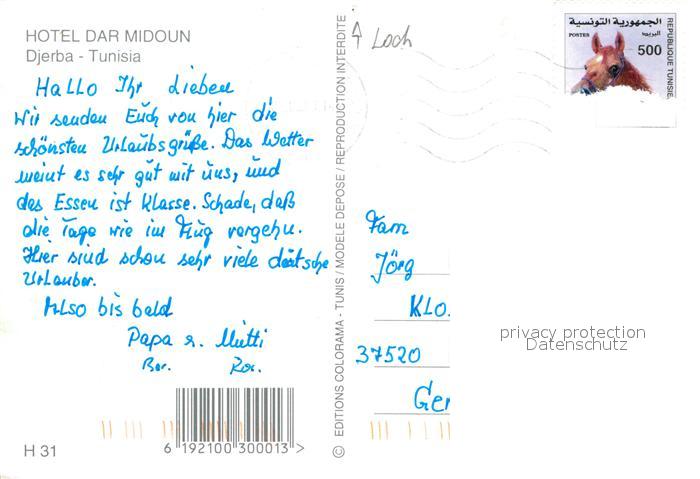 HOTEL DAR MIDOUN
Djerba - Tunisia
Hallo Ihr Lieben
Wir senden Euch von hier die
schönsten Urlaubsgrüße. Das Wetter
meint es sehr gut mit uns, und
das Essen ist Klasse. Schade, daß
die Tage wie im Flug vergehn.
Hier sind schon sehr viele deutsche
Urlauber.
Also bis bald
Papa u. Mutti
H 31
6 192100 300013 >
© EDITIONS COLORAMA - TUNIS / MODELE DEPOSE / REPRODUCTION INTERDITE
Loch
الجمهورية التونسية
البريد
POSTES
500
REPUBLIQUE TUNISIE
Fam
Jörg
Klo.
37520
Ger
privacy protection
Datenschutz